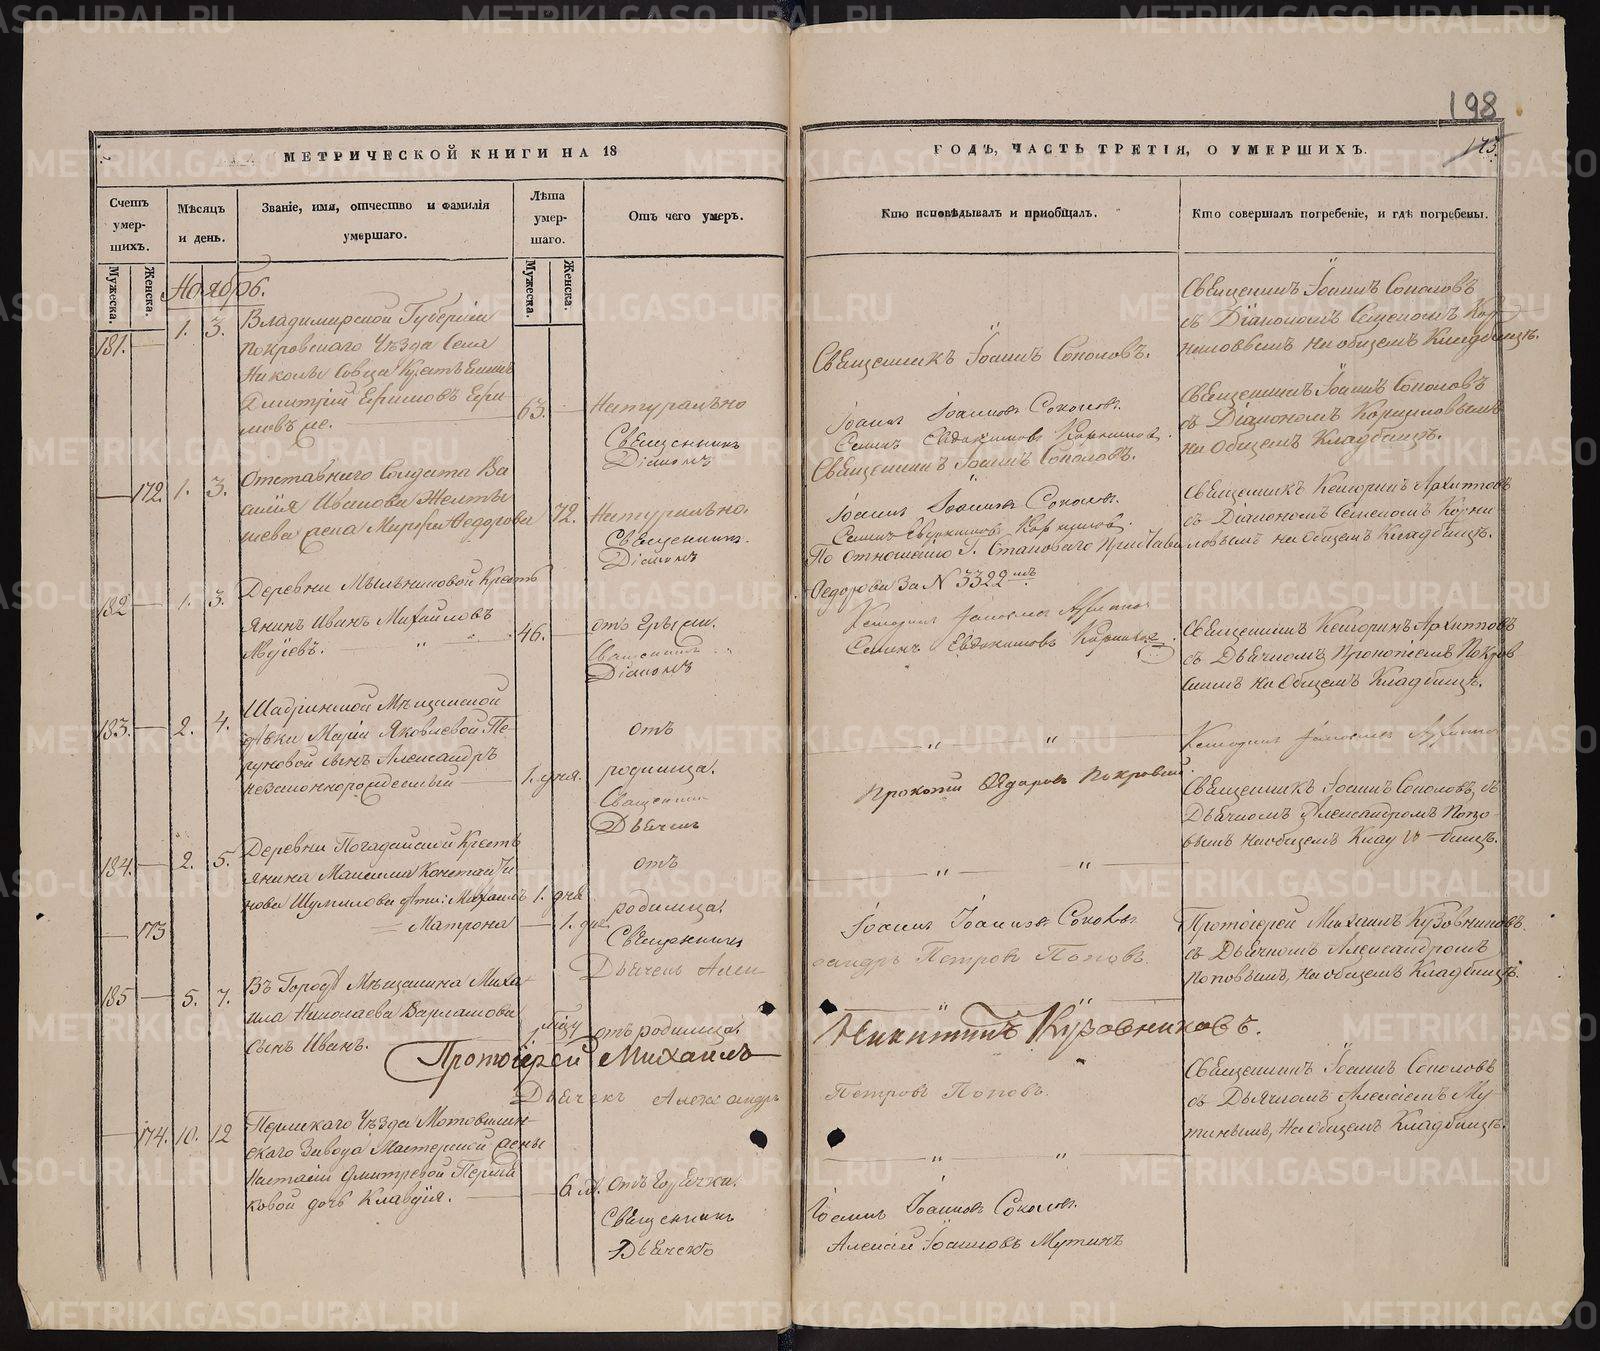 198
175.
МЕТРИЧЕСКОЙ КНИГИ НА 18
ГОДЪ, ЧАСТЬ ТРЕТІЯ, О УМЕРШИХЪ.
Счетъ умер-шихъ.
Мѣсяцъ и день.
Званіе, имя, отчество и фамилія умершаго.
Лѣта умер-шаго.
Отъ чего умеръ.
Кто исповѣдывалъ и пріобщалъ.
Кто совершалъ погребеніе, и гдѣ погребены.
Мужеска.
Женска.
Мужеска.
Женска.
Ноябрь.
181.
1. 3.
Владимирской Губерніи
покровскаго Уѣзда Села
Николы
Дмитрій Ефимовъ Ефи
мовъ же.
63.
Натурально
Священникъ
Діаконъ
Священникъ Іоаннъ Соколовъ.
Іоаннъ Іоанновъ Соколовъ.
Семенъ Евдокимовъ Корниловъ.
Священникъ Іоаннъ Соколовъ
съ Діакономъ Семеномъ Кор-
ниловымъ на общемъ Кладбищѣ.
172. 1. 3.
Отставнаго Солдата Ва
силія Иванова Желты
шева жена Марфа Федорова
72.
Натурально.
Священникъ.
Діаконъ
Священникъ Іоаннъ Соколовъ.
Іоаннъ Іоанновъ Соколовъ.
Семенъ Евдокимовъ Корниловъ.
Священникъ Іоаннъ Соколовъ
съ Діакономъ Корниловымъ
на Общемъ Кладбищѣ.
182
1. 3.
Деревни Мыльниковой Кресть
янинъ Иванъ Михайловъ
46.
отъ Грыжи.
Священникъ
Діаконъ
По отношенію Г. Становаго Пристава
Федорова За N 3322мъ
Семенъ Евдокимовъ Корниловъ.
Священникъ Архиповъ
съ Діакономъ Семеномъ Корни
ловымъ на общемъ Кладбищѣ.
183.
2. 4.
Шадринской Мѣщанской
дѣвки Маріи Яковлевой
сынъ Александръ
незаконнорожденный
1. дня.
отъ
родимца.
Священникъ
Дьячекъ
" "
Прокопій Федоровъ Покровскій.
Священникъ Архиповъ
съ Дьячкомъ Прокопіемъ Покров
скимъ на Общемъ Кладбищѣ.
184.
2. 5.
Деревни Погадайской Кресть
янина Максима Константи
нова Шумилова дѣти: Михаилъ
1. дня
173
Матрона
1. дня
отъ
родимца.
Священникъ
Дьячекъ Алек
" "
Іоаннъ Іоанновъ Соколовъ
сандръ Петровъ Поповъ.
Священникъ Іоаннъ Соколовъ, съ
Дьячкомъ Александромъ Попо
вымъ на общемъ Кладбищѣ.
185
5. 7.
Въ Городѣ Мѣщанина Миха
ила Николаева Варлакова
Сынъ Иванъ.
отъ родимца.
Протоіерей Михаилъ
Дьячекъ Александръ
" "
Никитинъ Кузовниковъ.
Петровъ Поповъ.
Протоіерей Михаилъ Кузовниковъ.
съ Дьячкомъ Александромъ
Поповымъ, на общемъ Кладбищѣ.
174. 10. 12
Пермскаго Уѣзда Мотовилин-
скаго Завода Мастерской жены
Настасіи Дмитревой
ковой дочь Клавдія.
6. м.
отъ горячки.
Священникъ
Дьячекъ
" "
Іоаннъ Іоанновъ Соколовъ.
Алексій Іоанновъ Мутинъ
Священникъ Іоаннъ Соколовъ
съ Дьячкомъ Алексіемъ Му
тинымъ, на общемъ Кладбищѣ.
METRIKI.GASO-URAL.RU